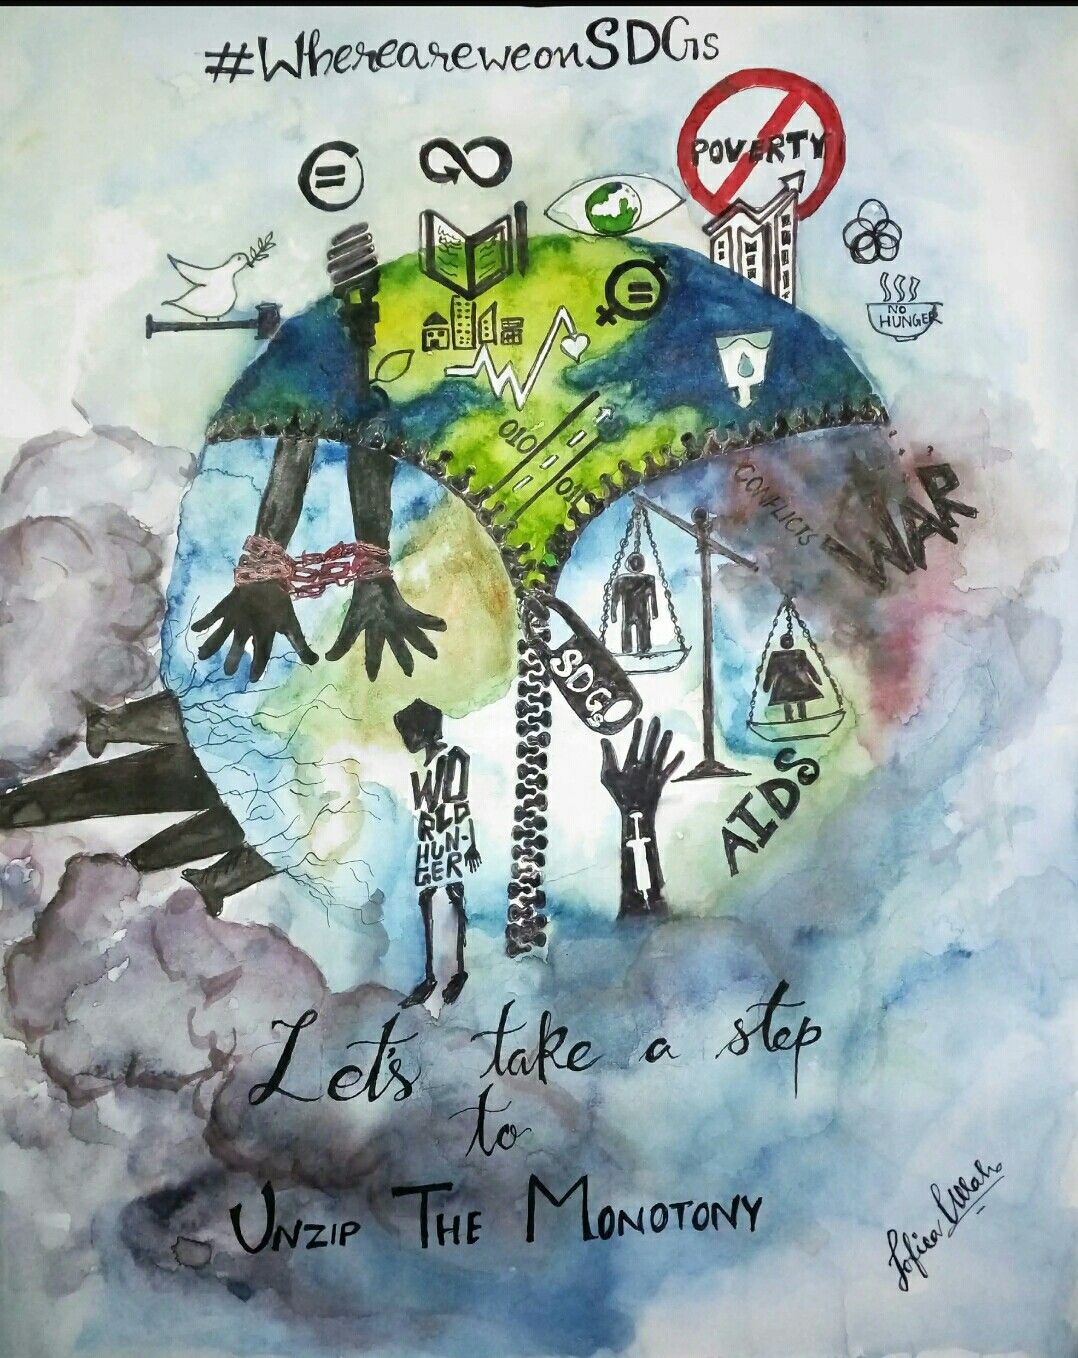 #WhereareweonSDGs
POVERTY
NO
HUNGER
010
011
CONFLICTS
WAR
SDGs
WO
RLD
HUN-
GER
AIDS
Let's take a step
to
UNZIP THE MONOTONY
Sofica Ullah